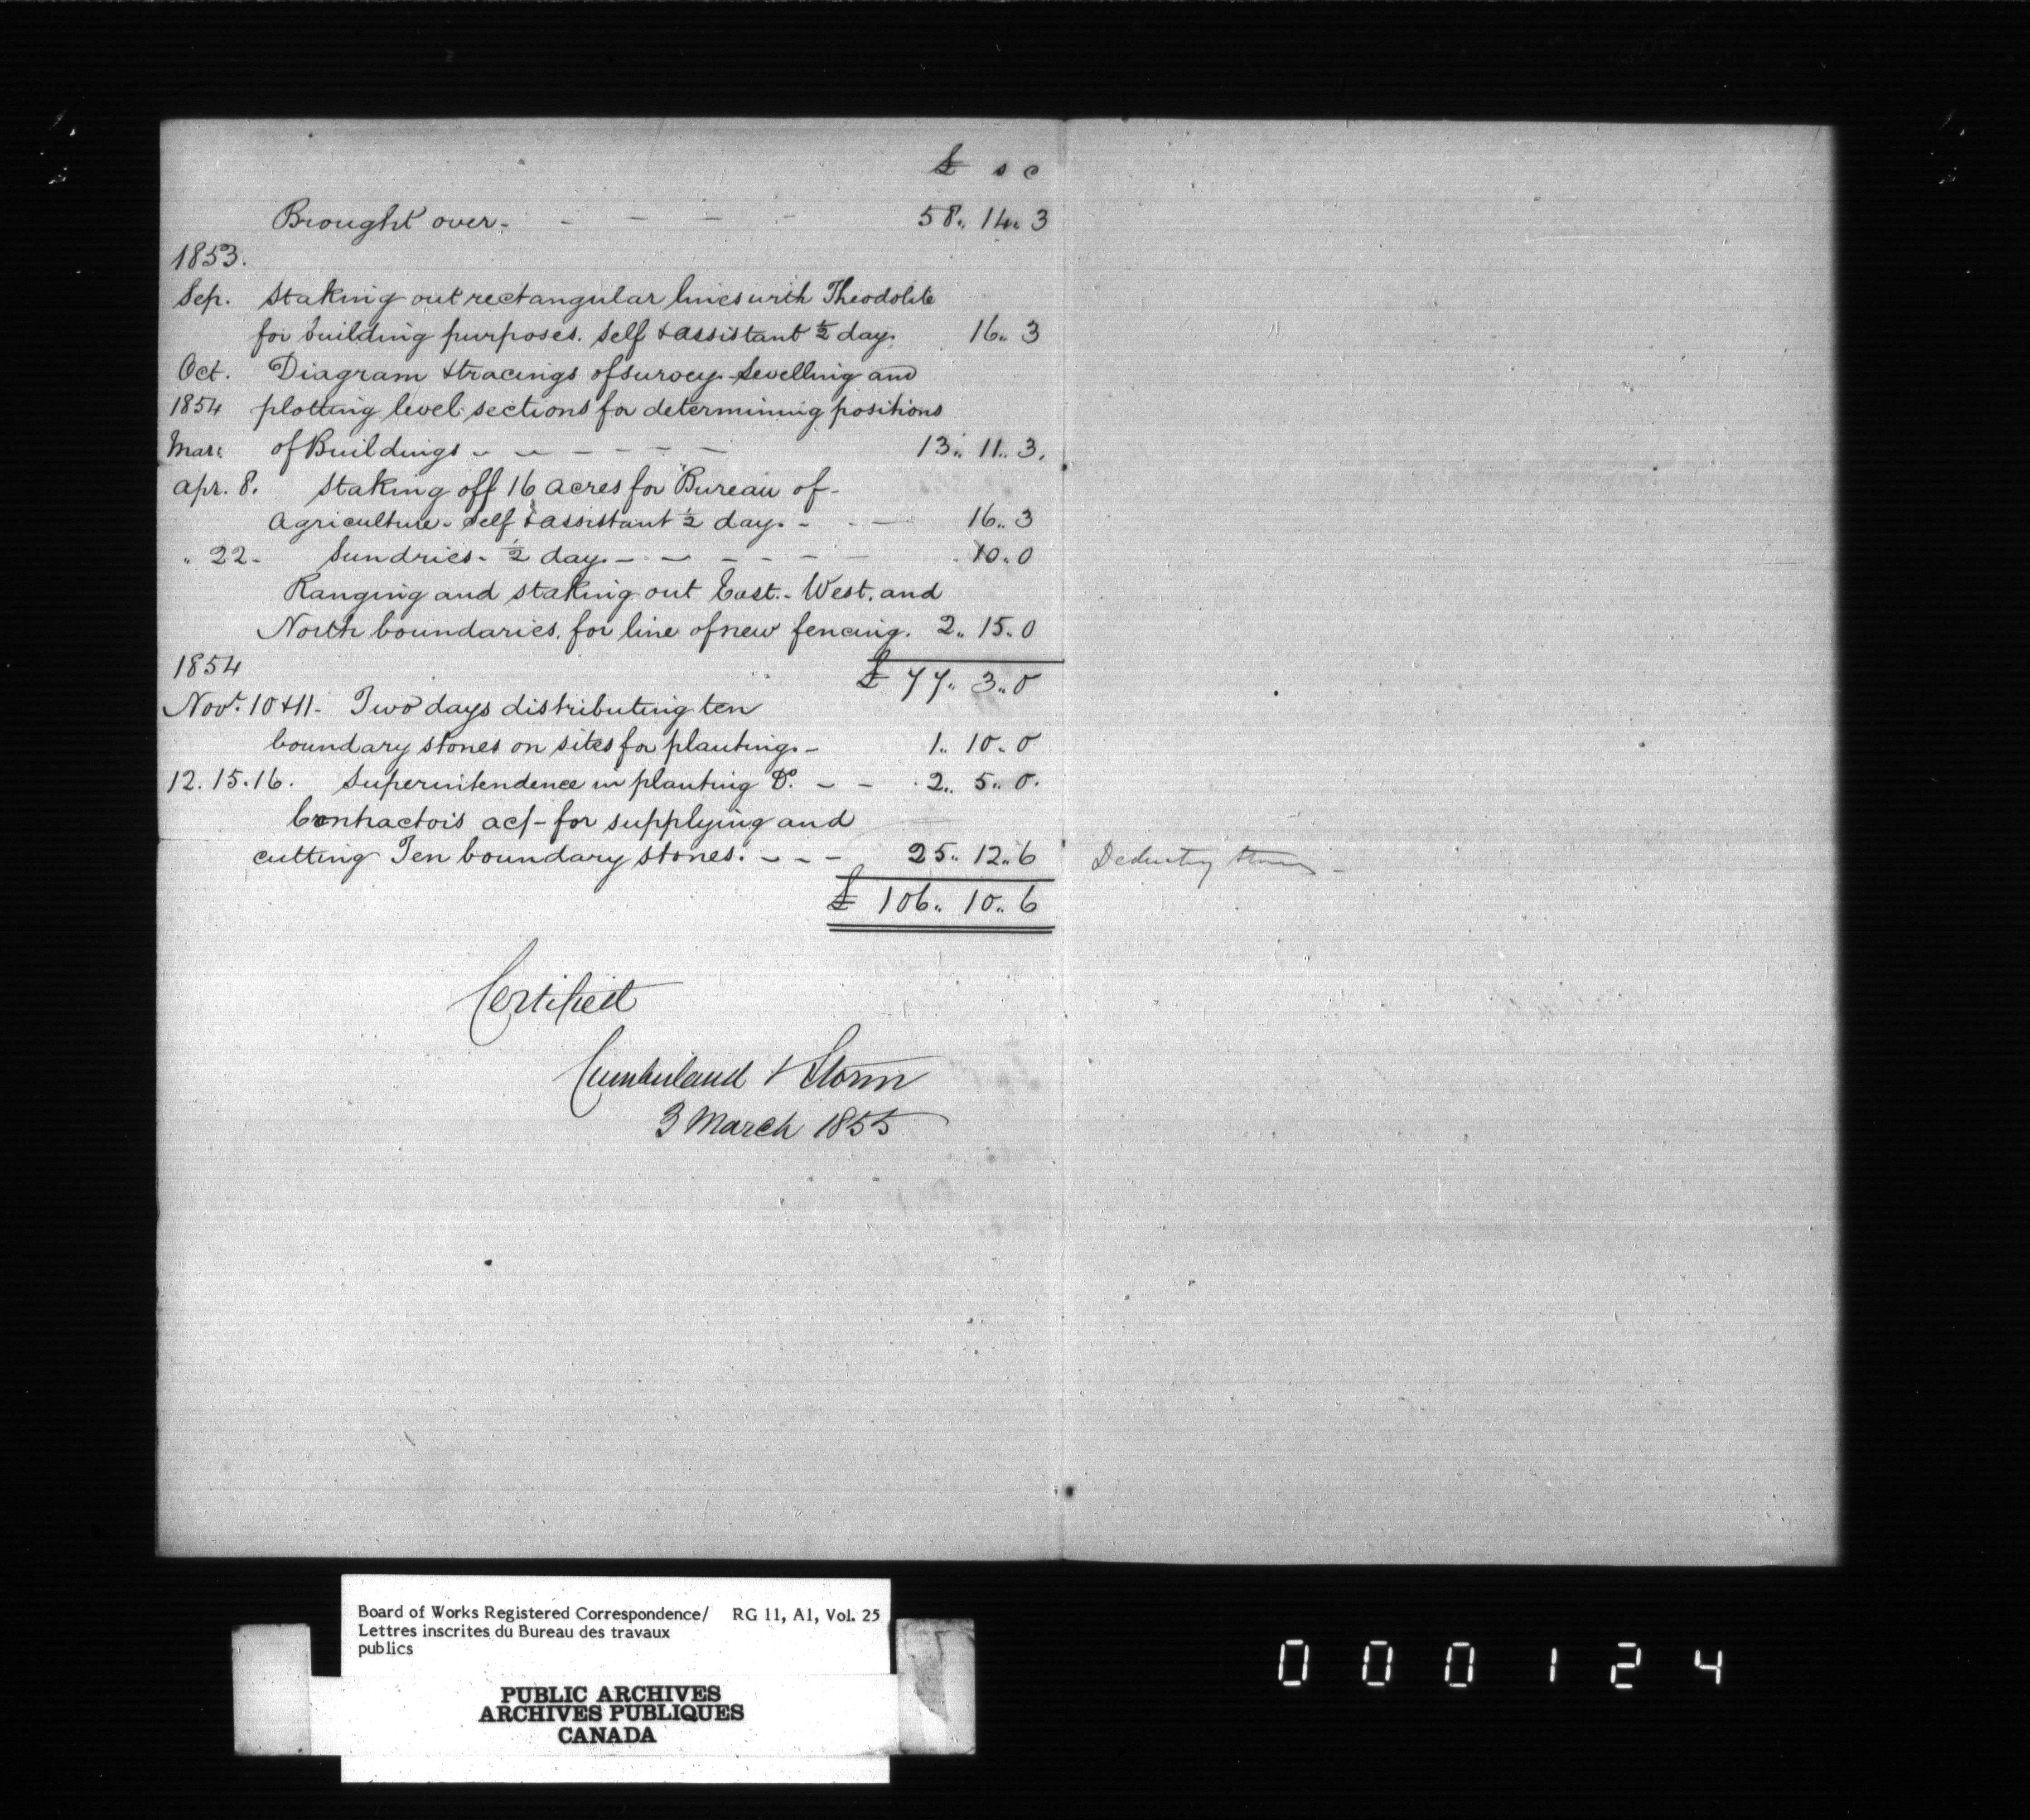 £ s c
Brought over - - - - - 58.. 14.. 3
1853.
Sep. Staking out rectangular lines with Theodolite
for building purposes. Self & assistant ½ day. 16.. 3
Oct. Diagram & tracings of survey - Levelling and
1854 plotting level sections for determining positions
Mar: of Buildings - - - - - - 13.. 11.. 3.
Apr. 8. Staking off 16 acres for Bureau of -
Agriculture - Self & assistant ½ day. - - - 16.. 3
" 22 - Sundries - ½ day - - - - - - 10.. 0
Ranging and staking out East. - West. and
North boundaries. for line of new fencing. 2.. 15.. 0
£ 77.. 3.. 0
1854
Novr. 10 & 11 - Two days distributing ten
boundary stones on sites for planting. - 1.. 10.. 0
12. 15. 16. Superintendence in planting Do. - - 2.. 5.. 0.
Contractois acf - for supplying and
cutting Ten boundary stones. - - - 25.. 12.. 6
£ 106.. 10.. 6
Certified
Cumberland & Storm
3 March 1855
Deducting
Board of Works Registered Correspondence/ RG 11, A1, Vol. 25
Lettres inscrites du Bureau des travaux
publics
PUBLIC ARCHIVES
ARCHIVES PUBLIQUES
CANADA
000124